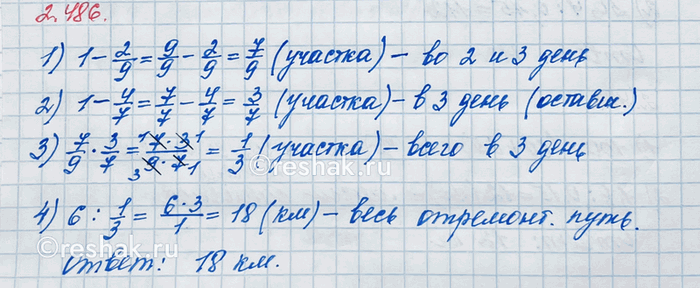 2.486.
1) 1 - 2/9 = 9/9 - 2/9 = 7/9 (участка) - во 2 и 3 день
2) 1 - 4/7 = 7/7 - 4/7 = 3/7 (участка) - в 3 день (оставш.)
3) 7/9 · 3/7 = ¹7·3¹/₃9·7₁ = 1/3 (участка) - всего в 3 день
4) 6 : 1/3 = 6·3/1 = 18 (км) - весь отремонт. путь.
Ответ: 18 км.
©reshak.ru